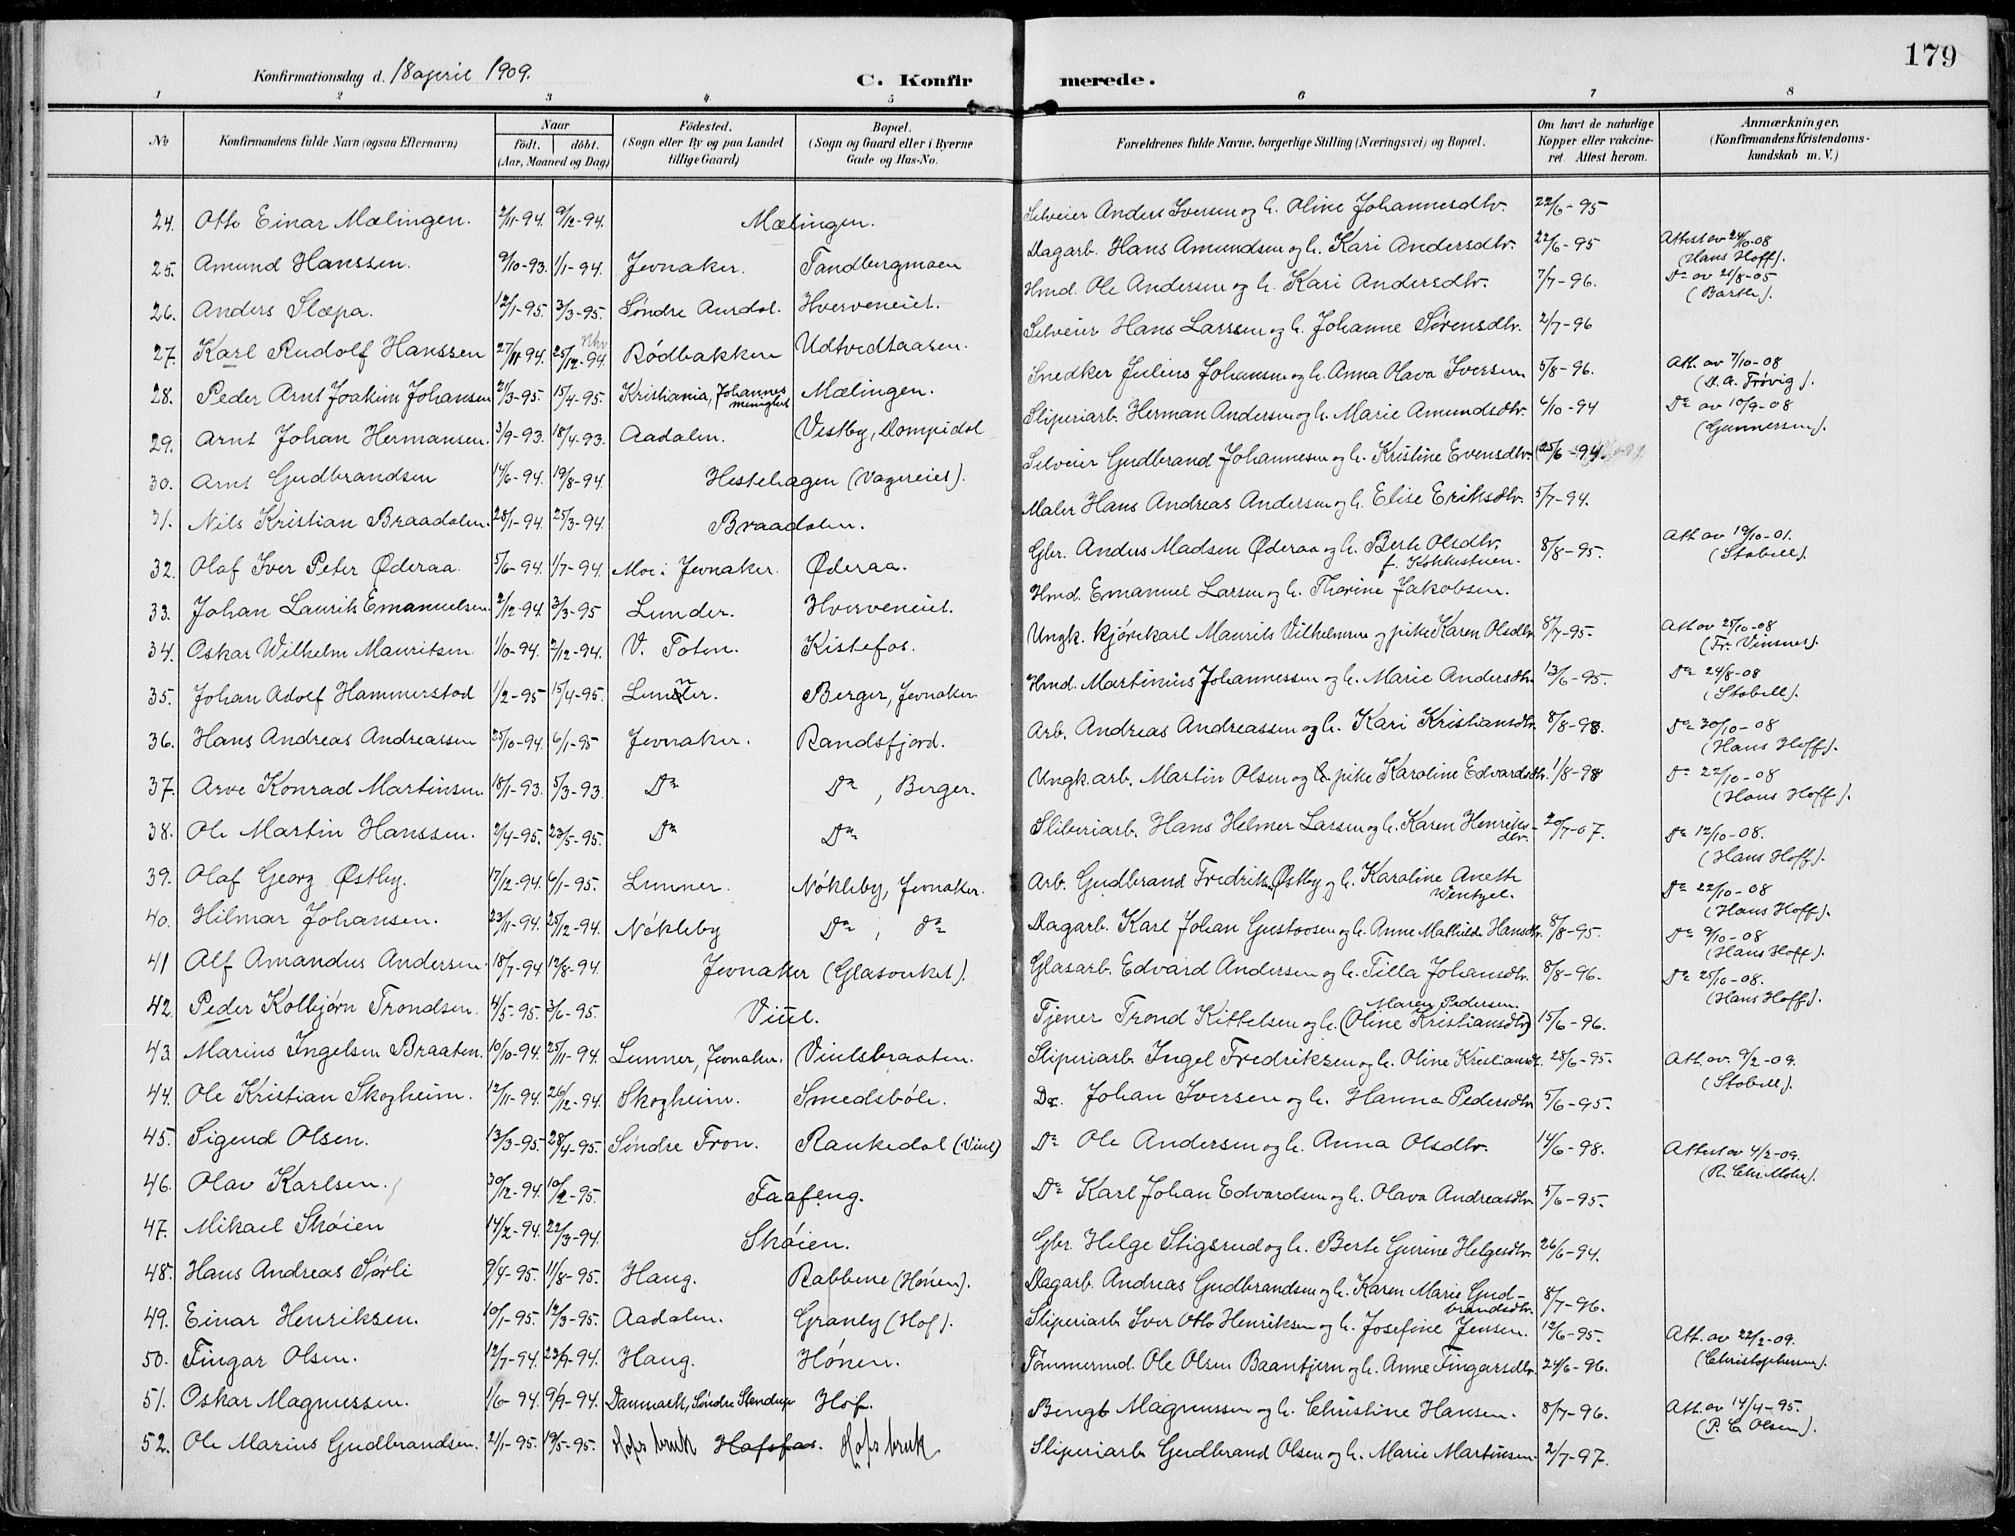 179
Konfirmationsdag d. 18 april 1909.
C. Konfirmerede.
1 2 3 4 5 6 7 8
No
Konfirmandens fulde Navn (ogsaa Efternavn)
Naar
født. døbt.
(Aar, Maaned og Dag)
Fødested.
(Sogn eller By og paa Landet
tillige Gaard)
Bopæl.
(Sogn og Gaard eller i Byerne
Gade og Hus-No.
Forældrenes fulde Navne, borgerlige Stilling (Næringsvei) og Bopæl.
Om havt de naturlige
Kopper eller vakcine-
ret. Attest herom.
Anmærkninger.
(Konfirmandens Kristendoms-
kundskab m. V.)
24. Otto Einar Mælingen. 2/11-94. 9/12-94. Mælingen. Selveier Anders Iversen og h. Oline Johannesdtr. 22/6-95
25. Amund Hanssen. 9/10-93. 1/1-94. Jevnaker. Tandbergmoen Dagarb. Hans Amundsen og h. Kari Andersdtr. 22/6-95 Attest av 24/10-08
(Hans Hoff).
26. Anders Slæpa. 12/1-95. 3/3-95. Søndre Aurdal. Hverveneiet. Hmd. Ole Andersen og h. Kari Andersdtr. 7/7-96. Do av 21/8-05
(Barth).
27. Karl Rudolf Hanssen 27/11-94. 25/12-94 Rødbakken Udtvedtaasen. Selveier Hans Larssen og h. Johanne Sørensdtr. 2/7-96
28. Peder Arnt Joakim Johansen 21/3-95. 15/4-95. Kristiania, Johannes
menighet Mælingen. Snedker Julius Johansen og h. Anna Olava Iversen 5/8-96. Att. av 7/10-08
(D. A. Frøvig).
29. Arnt Johan Hermansen. 3/9-93. 18/4-93. Aadalen. Vestby, Dompidal Sliperiarb. Herman Andersen og h. Marie Amundsdtr. 6/10-94 Do av 10/9-08
(Gunnersen).
30. Arnt Gudbrandsen 14/6-94. 19/8-94. Hestehagen (Vagereiet). Selveier Gudbrand Johannesen og h. Kristine Evensdtr. (25/6-94
31. Nils Kristian Braadalen. 28/1-94. 25/3-94. Braadalen. Maler Hans Andreas Andersen og h. Elise Eriksdtr. 5/7-94.
32. Olaf Iver Peter Øderaa. 5/6-94. 1/7-94. Mo i Jevnaker. Øderaa. Gbr. Anders Madsen Øderaa og h. Berte Olsdtr.
f. Kokkestuen. 8/8-95. Att av 19/10-01.
(Stabell).
33. Johan Laurits Emanuelsen. 2/12-94. 3/3-95 Lunder. Hverveneiet. Hmd. Emanuel Larsen og h. Thorine Jakobsen.
34. Oskar Wilhelm Mauritsen. 1/10-94. 2/12-94. V. Toten. Kistefos. Ungk. kjørekarl Maurits Vilhelmsen og pike Karen Olsdtr. 8/7-95. Att av 25/10-08
(Fr. Vinsnes).
35. Johan Adolf Hammerstad 1/2-95 15/4-95. Lunner. Berger, Jevnaker Hmd. Martinius Johannessen og h. Marie Andersdtr. 13/6-95. Do 24/8-08
(Stabell).
36. Hans Andreas Andreassen 25/10-94. 6/1-95 Jevnaker. Randsfjord. Arb. Andreas Andreassen og h. Kari Kristiansdtr. 8/8-98. Do 30/10-08
(Hans Hoff).
37. Arve Konrad Martinsen. 18/1-93. 5/3-93. Do Do, Berger. Ungk. arb. Martin Olsen og pike Karoline Edvardsdtr. 1/8-98 Do 22/10-08
(Hans Hoff).
38. Ole Martin Hanssen. 2/4-95. 23/5-95. Do Do Sliberiarb. Hans Helmer Larsen og h. Karen Henriks-
dtr. 20/7-07. Do 12/10-08.
(Hans Hoff).
39. Olaf Georg Østby. 17/12-94. 6/1-95. Lunner. Nøkleby, Jevnaker. Arb. Gudbrand Fredriksen Østby og h. Karoline Aneth
Wentzel. Do 22/10-08
(Hans Hoff).
40. Hilmar Johansen. 23/11-94. 25/12-94. Nøkleby Do, do Dagarb. Karl Johan Gustavsen og h. Anne Mathilde Hansdtr. 8/8-95. Do 9/10-08
(Hans Hoff).
41 Alf Amandus Andersen. 18/7-94 12/8-94. Jevnaker (Glasverket). Glasarb. Edvard Andersen og h. Tilla Johansdtr. 8/8-96. Do 25/10-08.
(Hans Hoff).
42. Peder Kolbjørn Trondsen. 4/5-95. 3/6-95. Viul. Tjener Trond Kittelsen og h. (Oline Kristiansdtr)
Maren Pedersen. 15/6-96.
43. Marius Ingelsen Braaten. 10/10-94. 25/11-94. Lunner, Jevnaker. Viulsbraaten. Sliperiarb. Ingel Fredriksen og h. Oline Kristiansdt. 28/6-95. Att. av. 9/2-09.
(Stabell).
44. Ole Kristian Skogheim. 12/11-94. 26/12-94. Skogheim. Smedsbøle. Do. Johan Iversen og h. Hanna Pedersdtr. 5/6-95.
45. Sigurd Olsen. 13/3-95. 28/4-95. Søndre Fron. Rankedal (Viul) Do Ole Andersen og h. Anna Olsdtr. 14/6-98. Attest av 4/2-09.
(R. Chr. Mohr).
46. Olav Karlsen. 30/12-94. 10/2-95. Faafeng. Do Karl Johan Edvardsen og h. Olava Andreasdtr. 5/6-95.
47. Mikael Skøien 14/2-94. 22/3-94. Skøien. Gbr. Helge Stigsrud og h. Berte Gurine Helgesdtr. 26/6-94.
48. Hans Andreas Sørli 9/4-95. 11/8-95. Haug. Rabbene (Hønen). Dagarb. Andreas Gudbrandsen og h. Karen Marie Gud-
brandsdtr. 8/7-96.
49. Einar Henriksen. 10/1-95. 12/3-95. Aadalen. Granby (Hof). Sliperiarb. Iver Otto Henriksen og h. Josefine Jensen. 12/6-95.
50. Fingar Olsen. 12/7-94. 23/9-94. Haug. Hønen. Tømmermd. Ole Olsen Baantjern og h. Anne Fingarsdtr. 24/6-96. Att. av 22/2-09.
(Christophersen).
51. Oskar Magnussen. 1/6-94. 9/9-94. Danmark, Søndre Stendrup Hof. Bengt Magnussen og h. Christine Hansen. 8/7-96. Att. av 14/4-95.
(P. C. Olsen).
52. Ole Marius Gudbrandsen. 21/1-95. 19/5-95. Hofs bruk Hofsfos. Hofs bruk Sliperiarb. Gudbrand Olsen og h. Marie Martinsen. 2/7-97.